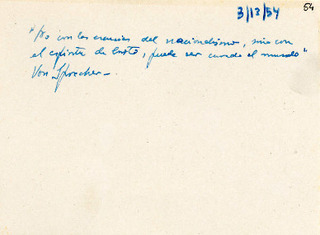 3/12/54
54
"No con las esencias del nacionalismo, sino con
el espíritu de Cristo, puede ser curado el mundo"
Von Sprecher.-